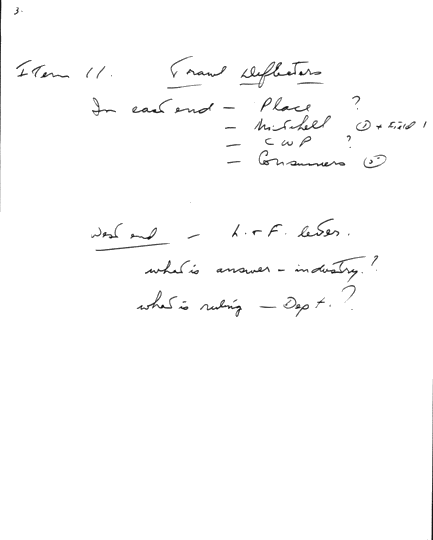 3.
Item 11. Trawl Deflectors
In east end - Place ?
- Mitchell ① + Field 1
- C W P ?
- Consumers
West end - L. & F. letter.
what is answer - industry. ?
what is ruling - Dept. ?